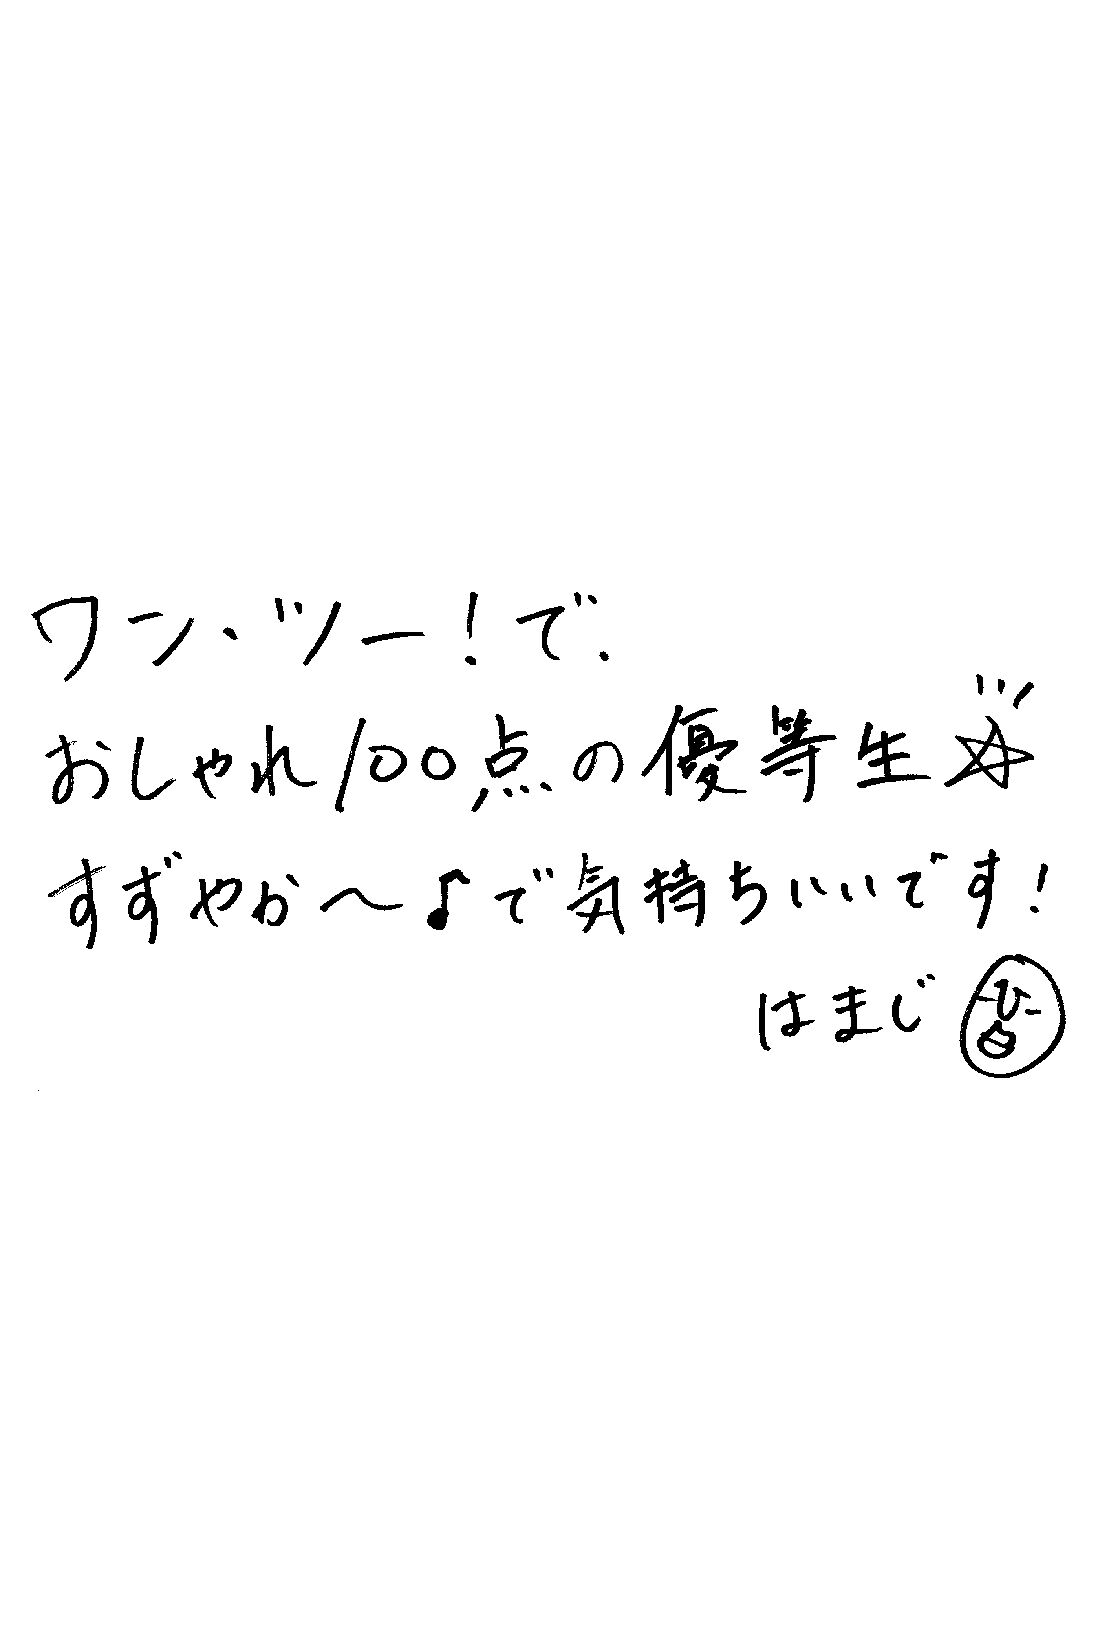 ワン・ツー!で.
おしゃれ100点の優等生☆
すずやか〜♪で気持ちいいです!
はまじ